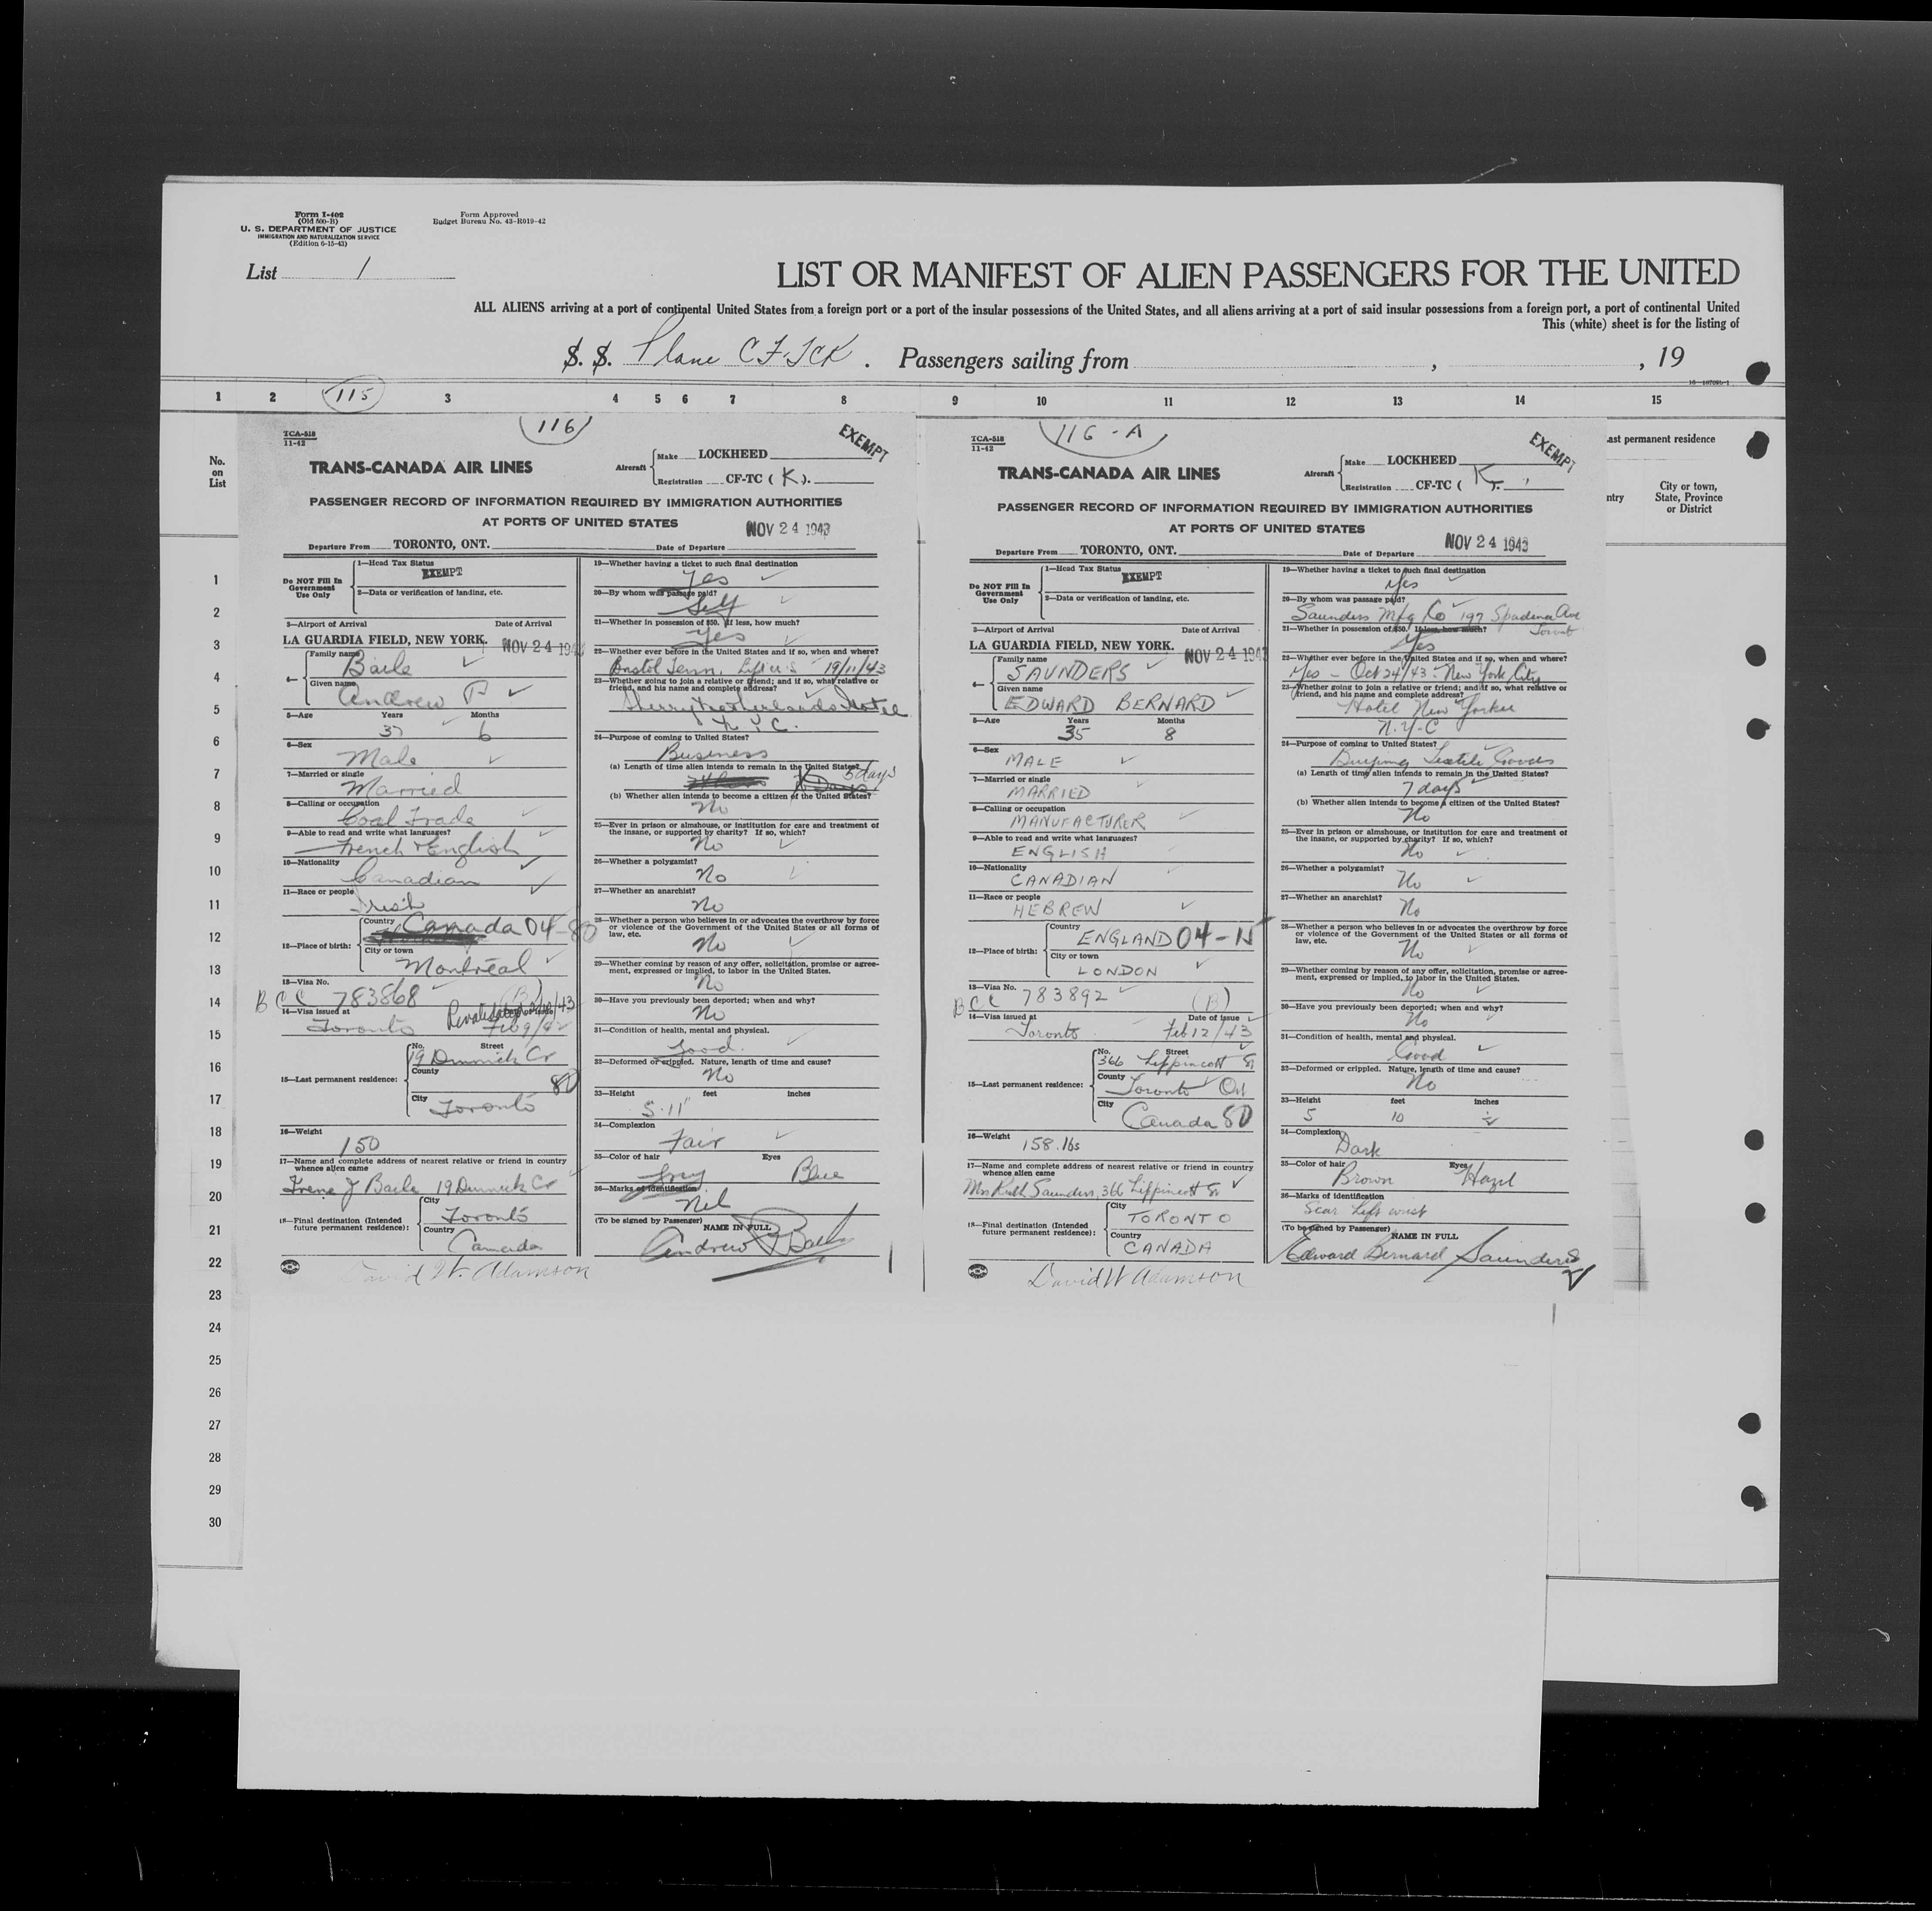 Form I-402
(Old 500-B)
U. S. DEPARTMENT OF JUSTICE
IMMIGRATION AND NATURALIZATION SERVICE
(Edition 6-15-43)
Form Approved
Budget Bureau No. 43-R019-42
List 1
LIST OR MANIFEST OF ALIEN PASSENGERS FOR THE UNITED
ALL ALIENS arriving at a port of continental United States from a foreign port or a port of the insular possessions of the United States, and all aliens arriving at a port of said insular possessions from a foreign port, a port of continental United
This (white) sheet is for the listing of
S. S. Plane CF-TCK. Passengers sailing from , , 19
1 2 115 3 4 5 6 7 8 9 10 11 12 13 14 15
No.
on
List
ast permanent residence
ntry
City or town,
State, Province
or District
1
2
3
4
5
6
7
8
9
10
11
12
13
14
15
16
17
18
19
20
21
22
23
24
25
26
27
28
29
30
TCA-518
11-42
116
EXEMPT
TRANS-CANADA AIR LINES
Aircraft Make LOCKHEED
Registration CF-TC ( K ).
PASSENGER RECORD OF INFORMATION REQUIRED BY IMMIGRATION AUTHORITIES
AT PORTS OF UNITED STATES
Departure From TORONTO, ONT. Date of Departure NOV 24 1943
Do NOT Fill In
Government
Use Only
1—Head Tax Status
EXEMPT
2—Data or verification of landing, etc.
3—Airport of Arrival Date of Arrival
LA GUARDIA FIELD, NEW YORK. NOV 24 194
4— Family name
Baile
Given name
Andrew P
5—Age Years Months
37 6
6—Sex
Male
7—Married or single
Married
8—Calling or occupation
Coal Trade
9—Able to read and write what languages?
French & English
10—Nationality
Canadian
11—Race or people
Irish
12—Place of birth: Country
Canada 04-80
City or town
Montreal
13—Visa No.
BCC 783868 (B)
14—Visa issued at
Toronto Feb 9/42
15—Last permanent residence: No. Street
County
80
City
Toronto
16—Weight
150
17—Name and complete address of nearest relative or friend in country
whence alien came
Irene J Baile 19
18—Final destination (Intended
future permanent residence):
City
Toronto
Country
Canada
David W. Adamson
19—Whether having a ticket to such final destination
Yes
20—By whom was passage paid?
Self
21—Whether in possession of $50. If less, how much?
Yes
22—Whether ever before in the United States and if so, when and where?
Bristol Tenn. Left U.S 19/11/43
23—Whether going to join a relative or friend; and if so, what relative or
friend, and his name and complete address?
Sherry Netherlands Hotel
N.Y.C.
24—Purpose of coming to United States?
Business
(a) Length of time alien intends to remain in the United States?
5 days
(b) Whether alien intends to become a citizen of the United States?
No
25—Ever in prison or almshouse, or institution for care and treatment of
the insane, or supported by charity? If so, which?
No
26—Whether a polygamist?
No
27—Whether an anarchist?
No
28—Whether a person who believes in or advocates the overthrow by force
or violence of the Government of the United States or all forms of
law, etc.
No
29—Whether coming by reason of any offer, solicitation, promise or agree-
ment, expressed or implied, to labor in the United States.
No
30—Have you previously been deported; when and why?
No
31—Condition of health, mental and physical.
Good.
32—Deformed or crippled. Nature, length of time and cause?
No
33—Height feet inches
5·11"
34—Complexion
Fair
35—Color of hair Eyes
Grey Blue
36—Marks of identification
Nil
(To be signed by Passenger) NAME IN FULL
Andrew P Baile
TCA-518
11-42
116-A
EXEMPT
TRANS-CANADA AIR LINES
Aircraft Make LOCKHEED
Registration CF-TC ( K ).
PASSENGER RECORD OF INFORMATION REQUIRED BY IMMIGRATION AUTHORITIES
AT PORTS OF UNITED STATES
Departure From TORONTO, ONT. Date of Departure NOV 24 1943
Do NOT Fill In
Government
Use Only
1—Head Tax Status
EXEMPT
2—Data or verification of landing, etc.
3—Airport of Arrival Date of Arrival
LA GUARDIA FIELD, NEW YORK. NOV 24 194
4— Family name
SAUNDERS
Given name
EDWARD BERNARD
5—Age Years Months
35 8
6—Sex
MALE
7—Married or single
MARRIED
8—Calling or occupation
MANUFACTURER
9—Able to read and write what languages?
ENGLISH
10—Nationality
CANADIAN
11—Race or people
HEBREW
12—Place of birth: Country
ENGLAND 04-
City or town
LONDON
13—Visa No.
BCC 783892 (B)
14—Visa issued at Date of Issue
Toronto Feb 12/43
15—Last permanent residence: No. Street
366 Lippincott St
County
Toronto Ont
City
Canada 80
16—Weight
158.lbs
17—Name and complete address of nearest relative or friend in country
whence alien came
Mrs Ruth Saunders, 366 Lippincott St
18—Final destination (Intended
future permanent residence):
City
TORONTO
Country
CANADA
David W Adamson
19—Whether having a ticket to such final destination
Yes
20—By whom was passage paid?
Saunders Mfg Co 197 Spadina Ave
Toronto
21—Whether in possession of $50. If less, how much?
Yes
22—Whether ever before in the United States and if so, when and where?
Yes - Oct 24/43. New York City
23—Whether going to join a relative or friend; and if so, what relative or
friend, and his name and complete address?
Hotel New Yorker
N.Y-C
24—Purpose of coming to United States?
Buying Textile Goods
(a) Length of time alien intends to remain in the United States?
7 days
(b) Whether alien intends to become a citizen of the United States?
No
25—Ever in prison or almshouse, or institution for care and treatment of
the insane, or supported by charity? If so, which?
No
26—Whether a polygamist?
No
27—Whether an anarchist?
No
28—Whether a person who believes in or advocates the overthrow by force
or violence of the Government of the United States or all forms of
law, etc.
No
29—Whether coming by reason of any offer, solicitation, promise or agree-
ment, expressed or implied, to labor in the United States.
No
30—Have you previously been deported; when and why?
No
31—Condition of health, mental and physical.
Good
32—Deformed or crippled. Nature, length of time and cause?
No
33—Height feet inches
5 10 ½
34—Complexion
Dark
35—Color of hair Eyes
Brown Hazel
36—Marks of identification
Scar Left wrist
(To be signed by Passenger) NAME IN FULL
Edward Bernard Saunders